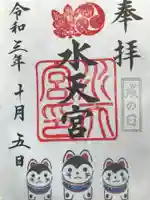 奉拝
戌の日
水天宮
水天宮
令和三年十月五日